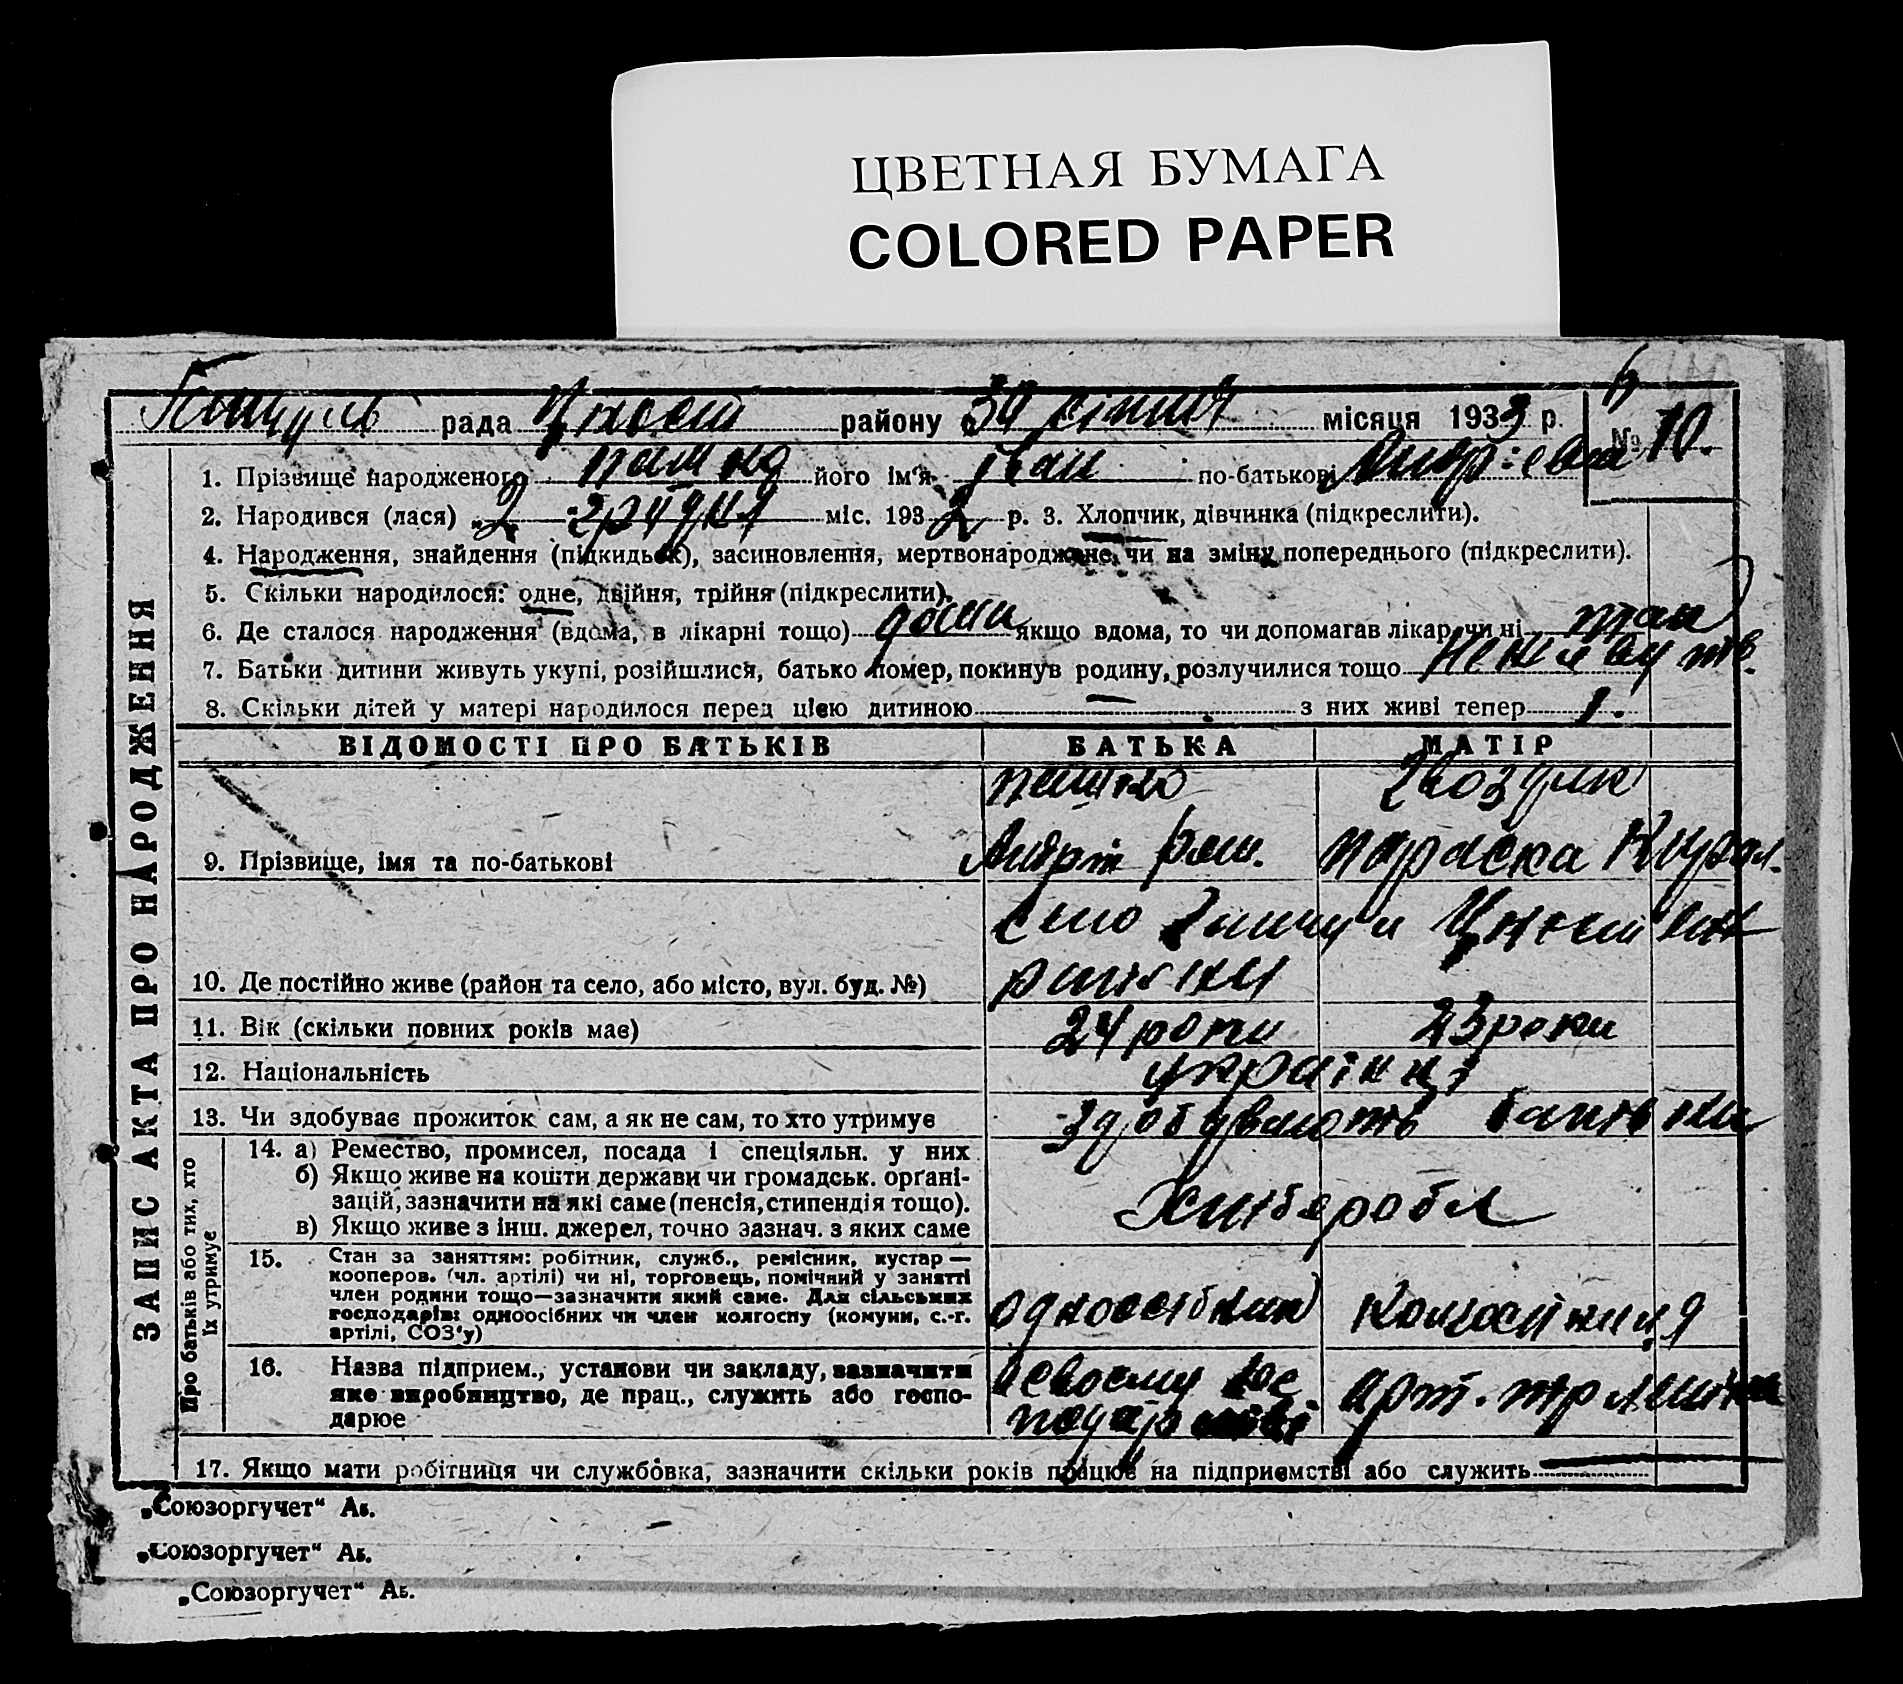 ЦВЕТНАЯ БУМАГА
COLORED PAPER
рада району 30 січня місяця 1933 р.
№ 10.
1. Прізвище народженого його ім'я Іван по-батькові
2. Народився (лася) 2 грудня міс. 1932 р. 3. Хлопчик, дівчинка (підкреслити).
4. Народження, знайдення (підкидьок), засиновлення, мертвонароджене, чи на зміну попереднього (підкреслити).
5. Скільки народилося: одне, двійня, трійня (підкреслити).
6. Де сталося народження (вдома, в лікарні тощо) дома якщо вдома, то чи допомагав лікар, чи ні
7. Батьки дитини живуть укупі, розійшлися, батько помер, покинув родину, розлучилися тощо не живуть.
8. Скільки дітей у матері народилося перед цією дитиною — з них живі тепер 1.
ЗАПИС АКТА ПРО НАРОДЖЕННЯ
ВІДОМОСТІ ПРО БАТЬКІВ БАТЬКА МАТІР
Гвоздик
9. Прізвище, імя та по-батькові Параска
село
10. Де постійно живе (район та село, або місто, вул. буд. №)
11. Вік (скільки повних років має) 24 роки 23 роки
12. Національність українці
13. Чи здобуває прожиток сам, а як не сам, то хто утримує здобувають батьки
Про батьків або тих, хто їх утримує
14. а) Ремество, промисел, посада і спеціяльн. у них
б) Якщо живе на кошти держави чи громадськ. орґані-
зацій, зазначити на які саме (пенсія, стипендія тощо).
в) Якщо живе з інш. джерел, точно зазнач. з яких саме
Хлібороби
15. Стан за заняттям: робітник, служб., ремісник, кустар —
кооперов. (чл. артілі) чи ні, торговець, помічний у занятті
член родини тощо—зазначити який саме. Для сільських
господарів: одноосібних чи член колгоспу (комуни, с.-г.
артілі, СОЗ'у)
одноосібник колгоспниця
16. Назва підприєм., установи чи закладу, зазначити
яке виробництво, де прац., служить або госпо-
дарюе
в своєму гос
подарстві арт.
17. Якщо мати робітниця чи службовка, зазначити скільки років працює на підприємстві або служить —
„Союзоргучет“ Аб.
„Союзоргучет“ Аб.
„Союзоргучет“ Аб.